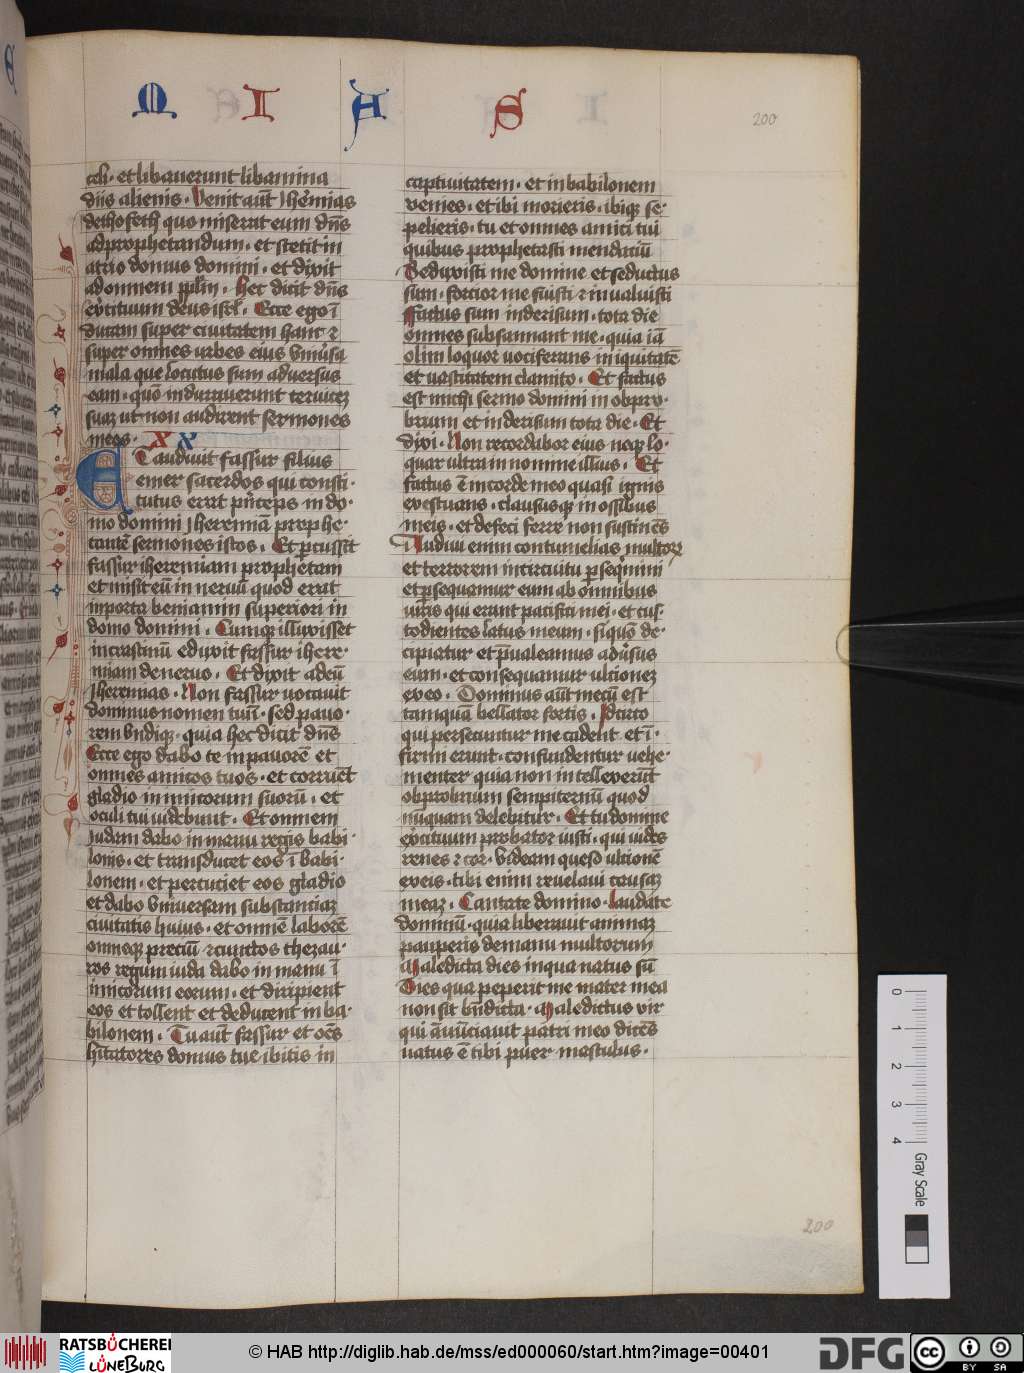 M I A S
200
celi · et libauerunt libamina
diis alienis · Venit aūt Jherēmias
dethofeth quo miserat eum dn̄s
ad prophetandum · et stetit in
atrio domus domini · et dixit
ad omnem pp̄lm · Hec dicit dn̄s
exc̄ituum deus isrl̄ · Ecce ego ī
ducam super ciuitatem hanc ⁊
super omnes vrbes eius vniūsa
mala que locutus sum aduersus
eam · quō indurauerunt ceruicez
suaz ut non audirent sermones
meos · XX
ET audiuit fassur filius
emer sacerdos qui consti·
tutus erat pn̄ceps in do·
mo domini Jheremiā prophe·
tantē sermones istos · Et ꝑcussit
fassur iheremiam prophetam
et misit eū in neruū quod erat
in porta beniamin superiori in
domo domini · Cumqꝫ illuxisset
in crastinū eduxit fassur ihere·
miam de neruo · Et dixit ad eū
Jheremias · Non fassur uocauit
dominus nomen tuū · sed pauo·
rem vndiqꝫ · quia hec dicit dn̄s
Ecce ego dabo te in pauorē et
omnes amicos tuos · et corruēt
gladio inimicorum suorū · et
oculi tui uidebunt · Et omnem
Judam dabo in manu regis babi·
lonis · et transducet eos ī babi·
lonem · et percuciet eos gladio
et dabo vniuersam substanciaꝫ
ciuitatis huius · et omnē laborē
omneqꝫ preciū ⁊ cunctos thezau·
ros regum iuda dabo in manu ī
imicorum eorum · et diripient
eos et tollent et deducent in ba·
bilonem · Tu aūt fassur et oēs
hītatores domus tue ibitis in
captiuitatem · et in babilonem
venies · et ibi morieris · ibiqꝫ se·
pelieris · tu et omnes amici tui
quibus prophetasti mendaciū
Seduxisti me domine et seductus
sum · forcior me fuisti ⁊ inualuisti
ffactus sum in derisum · tota die
omnes subsannant me · quia iā
olim loquor uociferans iniquitatē
et uastitatem clamito · Et factus
est michi sermo domini in oppro·
brium et in derisum tota die · Et
dixi · Non recordabor eius neqꝫ lo·
quar ultra in nomine illius · Et
factus ē in corde meo quasi ignis
exestuans · claususqꝫ in ossibus
meis · et defeci ferre non sustinēs
Audiui enim contumelias multorꝝ
et terrorem in circuitu ꝑseqimini
et ꝑsequamur eum ab omnibus
uiris qui erant pacifici mei · et cus·
todientes latus meum · si quō de·
cipiatur et p̄ualeamus adūsus
eum · et consequamur ultionez
ex eo · Dominus aūt mecū est
tamquā bellator fortis · Jdcirco
qui persecuntur me cadent et ī·
firmi erunt · confundentur vehe·
menter quia non intellexerūt
obprobrium sempiternū quod
nūquam delebitur · Et tu domine
exc̄ituum probator iusti · qui uides
renes ⁊ cor · Videam queso ultionē
ex eis · tibi enim reuelaui causaꝫ
meaꝫ · Cantate domino · Laudate
dominū · quia liberauit animaꝫ
pauperis de manu multorum
Maledicta dies in qua natus sū
Dies qua peperit me mater mea
non sit bn̄dicta · Maledictus vir
qui ān̄unciauit patri meo dicēs
natus ē tibi puer masculus ·
200
0 1 2 3 4
Gray Scale
RATSBÜCHEREI
LÜNEBURG
© HAB http://diglib.hab.de/mss/ed000060/start.htm?image=00401
DFG
cc BY SA